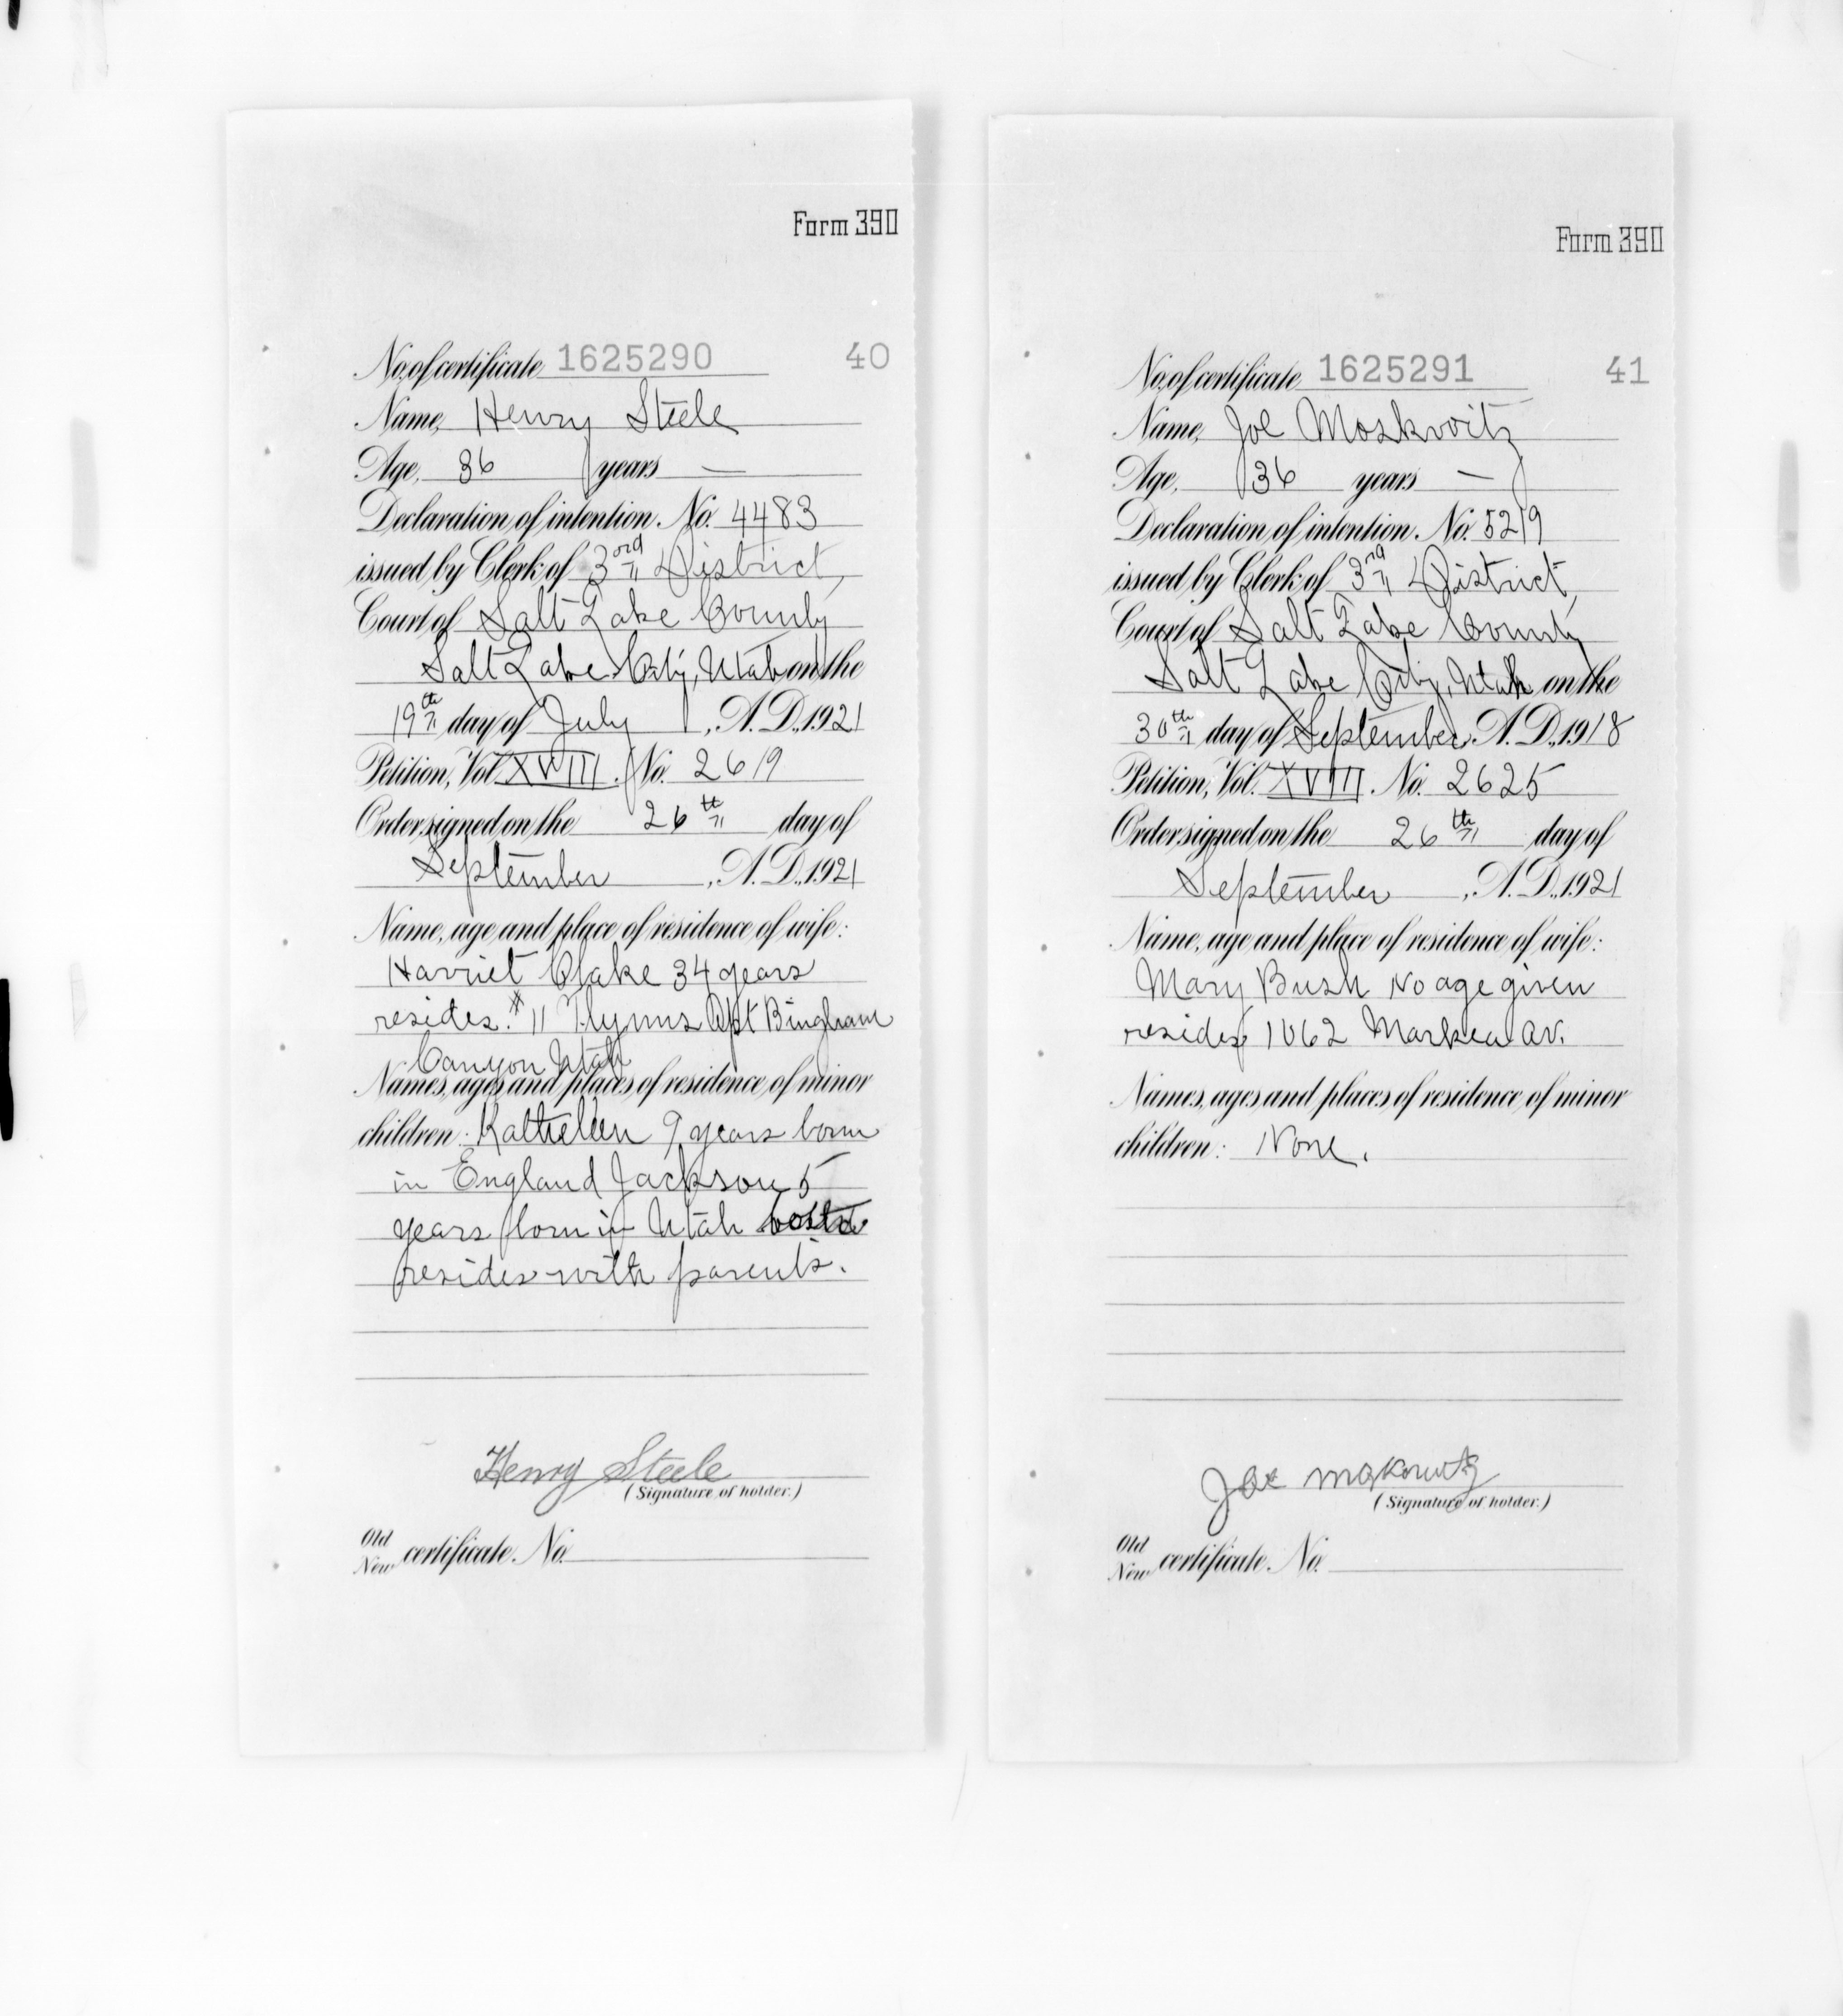 Form 390
No. of certificate 1625290 40
Name, Henry Steele
Age, 36 years —
Declaration of intention, No. 4483
issued by Clerk of 3rd District,
Court of Salt Lake County
Salt Lake City, Utah on the
19th day of July, A.D., 1921
Petition, Vol. XVIII. No. 2619
Order signed on the 26th day of
September, A.D., 1921
Name, age and place of residence of wife:
Harriet 34 years
resides. #11 Apt Bingham
Canyon Utah
Names, ages and places of residence of minor
children: Kathelen 9 years born
in England Jackson 5
years born in Utah both
resides with parents.
Henry Steele
(Signature of holder.)
Old
New certificate, No.
Form 390
No. of certificate 1625291 41
Name, Joe Moskovitz
Age, 36 years —
Declaration of intention, No. 5219
issued by Clerk of 3rd District,
Court of Salt Lake County
Salt Lake City, Utah on the
30th day of September, A.D., 1918
Petition, Vol. XVIII. No. 2625
Order signed on the 26th day of
September, A.D., 1921
Name, age and place of residence of wife:
Mary Bush No age given
resides 1062 Markea Av.
Names, ages and places of residence of minor
children: None.
Joe
(Signature of holder.)
Old
New certificate, No.